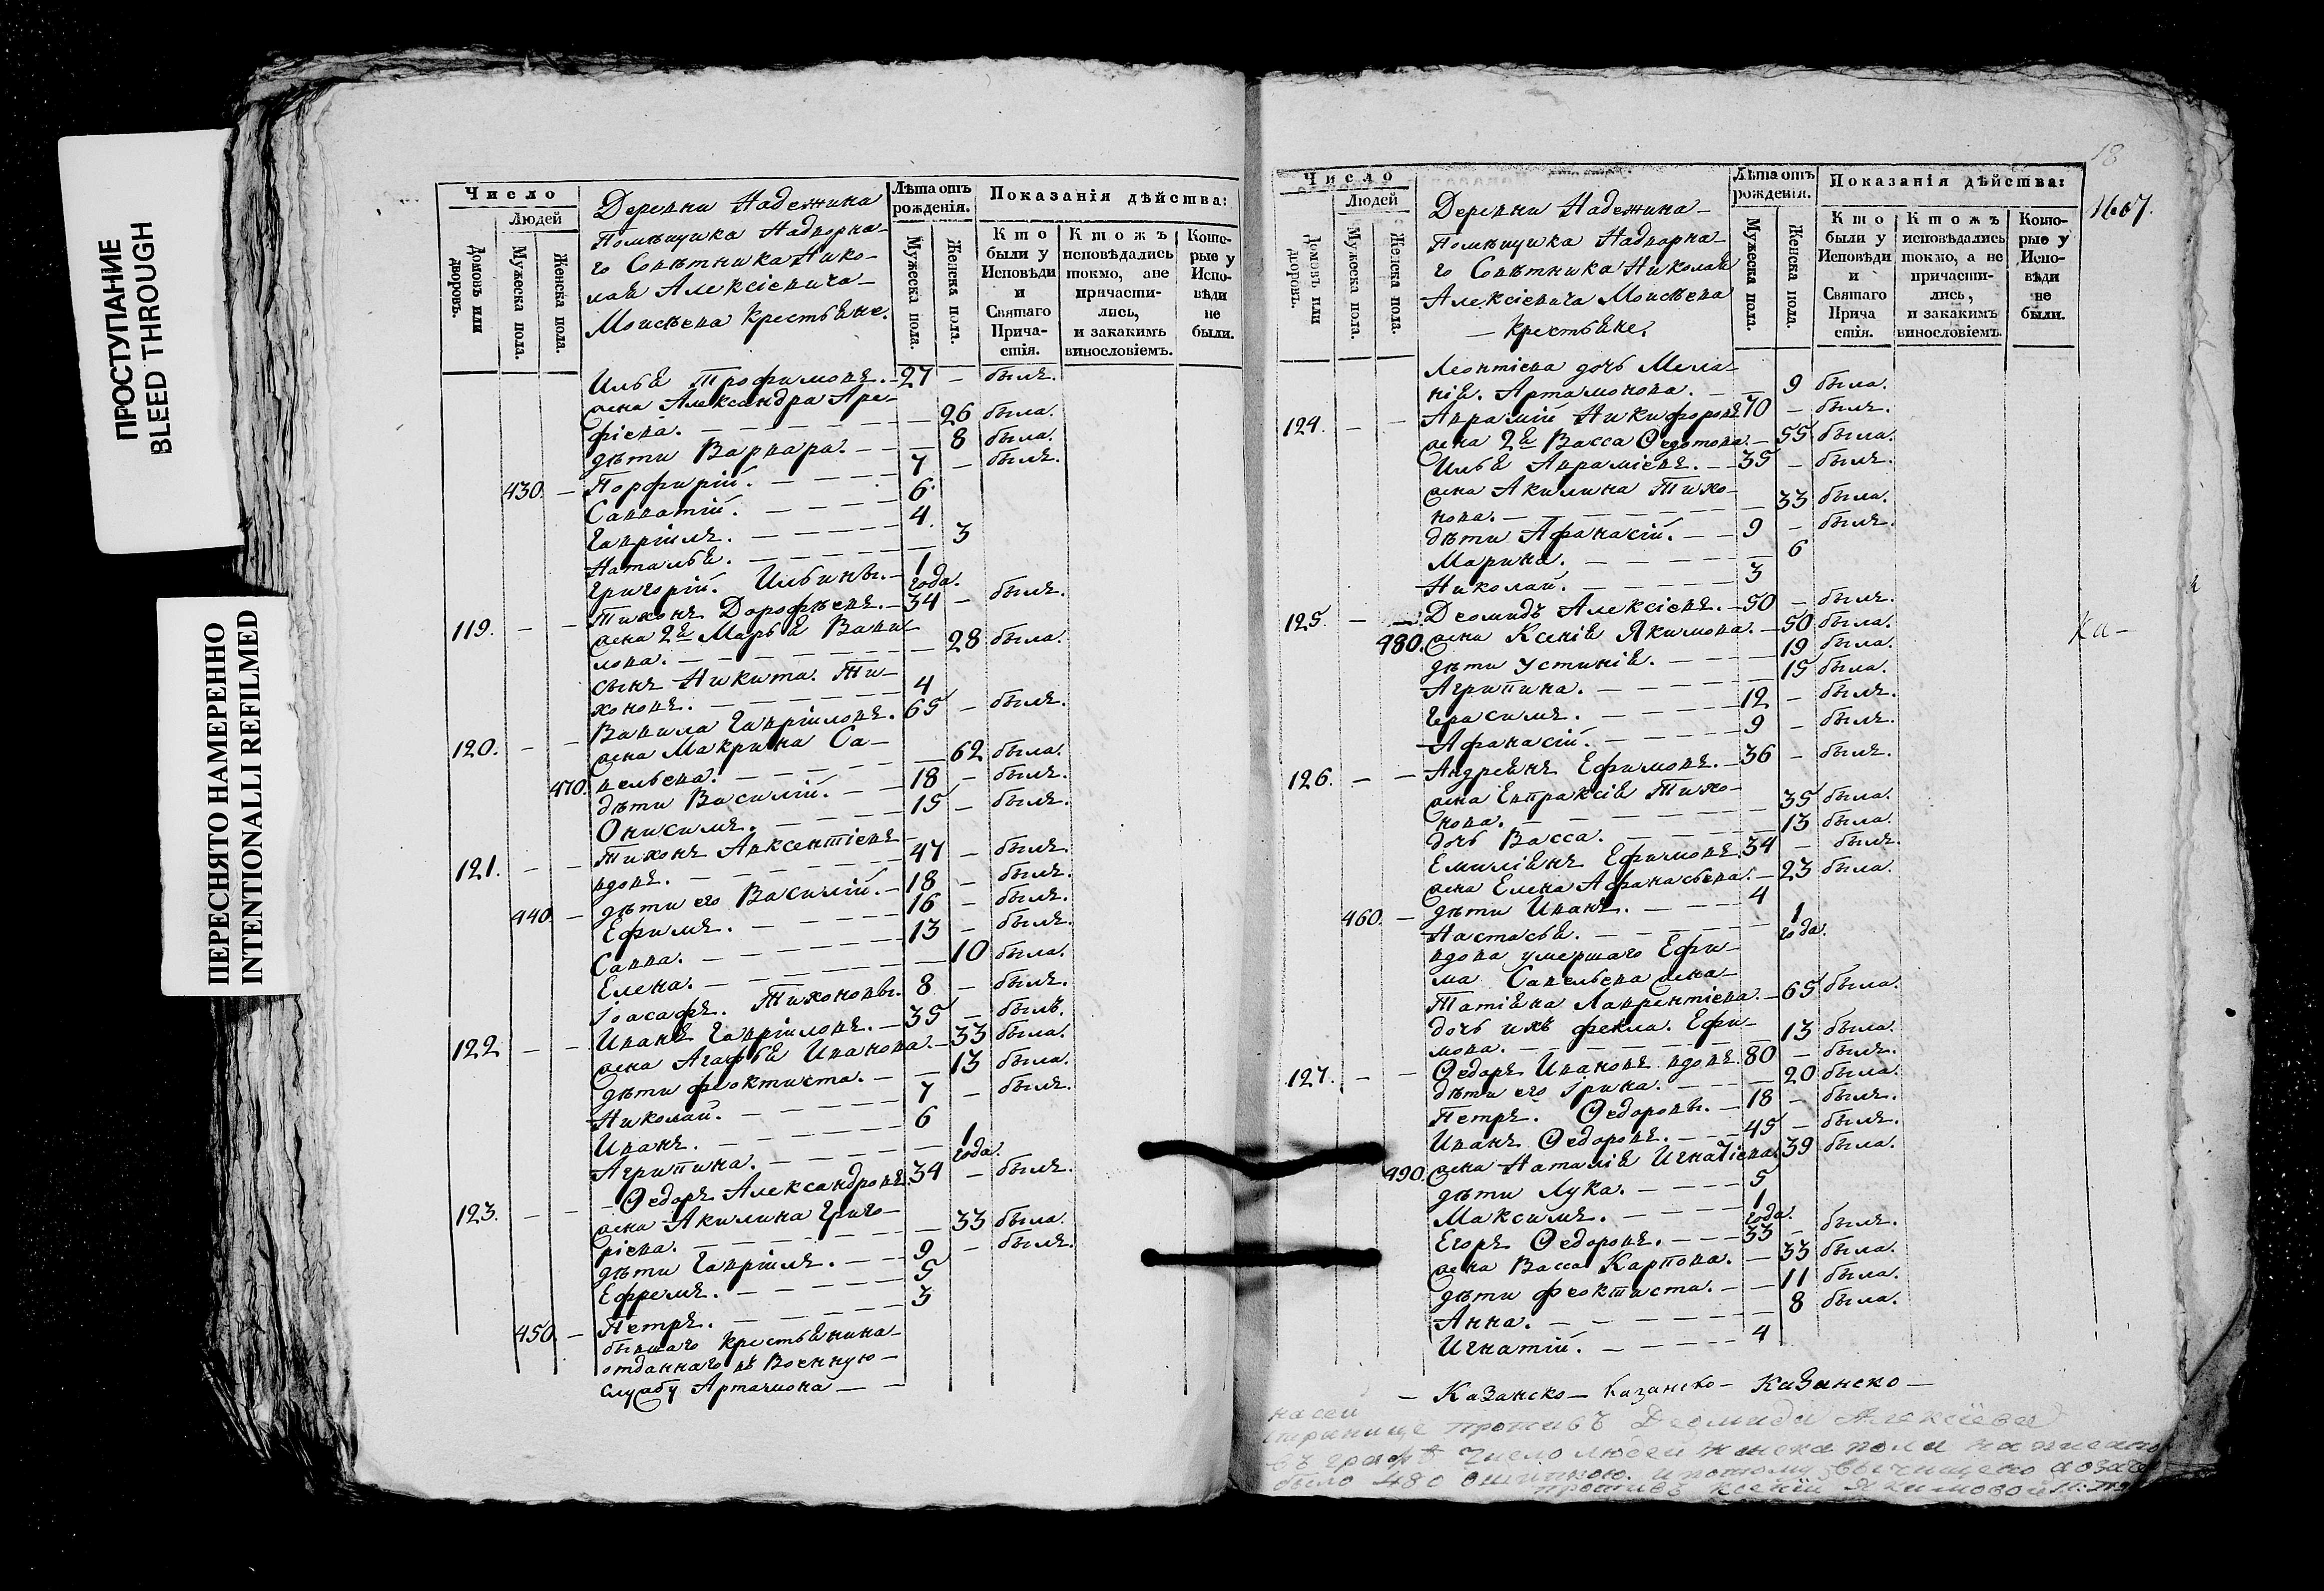 ПРОСТУПАНИЕ
BLEED THROUGH
ПЕРЕСНЯТО НАМЕРЕННО
INTENTIONALLI REFILMED
Число
Людей
Домовъ или дворовъ.
Мужеска пола.
Женска пола.
Деревни Надежина
Помѣщика Надворна-
го Совѣтника Нико-
лая Алексіевича
Моисѣева крестьяне.
Лѣта отъ рожденія.
Мужеска пола.
Женска пола.
Показанія дѣйства:
Кто были у Исповѣди и Святаго Прича-стія.
Ктожъ исповѣдались токмо, ане причасти-лись, и закакимъ винословіемъ.
Кото-рые у Испо-вѣди не были.
Илья Трофимовъ. 27 – былъ.
жена Александра Аре-
фіева. – 26 была.
дѣти Варвара. – 8 была.
430. – Порфирій. 7 – былъ.
Савватій. 6.
Гавріилъ. 4.
Наталья. – 3
Григорій. Ильины. 1 года.
119. – – Тихонъ Дорофѣевъ. 34 – былъ.
жена 2я Марья Вави-
лова. – 28 была.
сынъ Никита. Ти-
хоновъ. 4
120. – – Вавила Гавріиловъ. 65 – былъ.
жена Макрина Са-
470. вельева. – 62 была.
дѣти Василій. 18 – былъ.
Онисимъ. 15 – былъ.
121. – – Тихонъ Авксентіевъ
вдовъ. 47 – былъ.
дѣти его Василій. 18 – былъ.
440. – Ефимъ. 16 – былъ.
Савва. 13 – былъ.
Елена. – 10 была.
Іоасафъ. Тихоновы. 8 – былъ.
122. – – Иванъ Гавріиловъ. 35 – былъ.
жена Агафья Иванова. – 33 была.
дѣти Феоктиста. – 13 была.
Николай. 7 – былъ.
Иванъ. 6
Агрипина. – 1 года.
123. – – Ѳедоръ Александровъ. 34 – былъ.
жена Акилина Григо-
ріева. – 33 была.
дѣти Гавріилъ. 9 – былъ.
Ефремъ. 5
450. – Петръ. 3
бывшаго крестьянина
отданнаго въ Военную
службу Артамона
18
1607.
Число
Людей
Домовъ или дворовъ.
Мужеска пола.
Женска пола.
Деревни Надежина
Помѣщика Надворна-
го Совѣтника Николая
Алексіевича Моисѣева
крестьяне.
Лѣта отъ рожденія.
Мужеска пола.
Женска пола.
Показанія дѣйства:
Кто были у Исповѣди и Святаго Прича стія.
Ктожъ исповѣдались токмо, а не причасти-лись, и закакимъ винословіемъ.
Кото-рые у Испо-вѣди не были.
Леонтіева дочь Мела-
нія. Артамонова. – 9 была.
124. – – Аврамій Никифоровъ 70 – былъ.
жена 2я Васса Ѳедотова. – 55 была.
Илья Аврамієвъ. 35 – былъ.
жена Акилина Тихо-
нова. – 33 была.
дѣти Афанасій. 9 – былъ.
Марина. – 6
Николай. 3
125. – – Деомидъ Алексіевъ. 50 – былъ.
480. жена Ксенія Якимова. – 50 была.
дѣти Устинія. – 19 была.
Агрипина. – 15 была.
Герасимъ. 12 – былъ.
Афанасій. 9 – былъ.
126. – – Андреянъ Ефимовъ. 36 – былъ.
жена Евпраксія Тихо-
нова. – 35 была.
дочь Васса. – 13 была.
Емиліянъ Ефимовъ. 34 – былъ.
жена Елена Афанасьева. – 23 была.
460. – дѣти Иванъ. 4
Настасья. – 1 года.
вдова умершаго Ефи-
ма Савельева жена
Татіяна Лаврентіева. – 65 была.
дочь ихъ Фекла. Ефи-
мова. – 13 была.
127. – – Ѳедоръ Ивановъ вдовъ. 80 – былъ.
дѣти его Ірина. – 20 была.
Петръ. Ѳедоровы. 18 – былъ.
Иванъ Ѳедоровъ. 45 – былъ.
490. жена Наталія Игнатіева. 39 была.
дѣти Лука. 5
Максимъ. 1 года.
Егоръ Ѳедоровъ. 33 – былъ.
жена Васса Карпова. – 33 была.
дѣти Феоктиста. – 11 была.
Анна. – 8 была.
Игнатій. 4
Ка-
– Казанско – Казанско – Казанско –
на сей
странице противъ Деомида Алексіева
въ графѣ число людей женска пола написано
было 480 ошибкою. и потому вычищено
противъ Ксеніи Якимовой